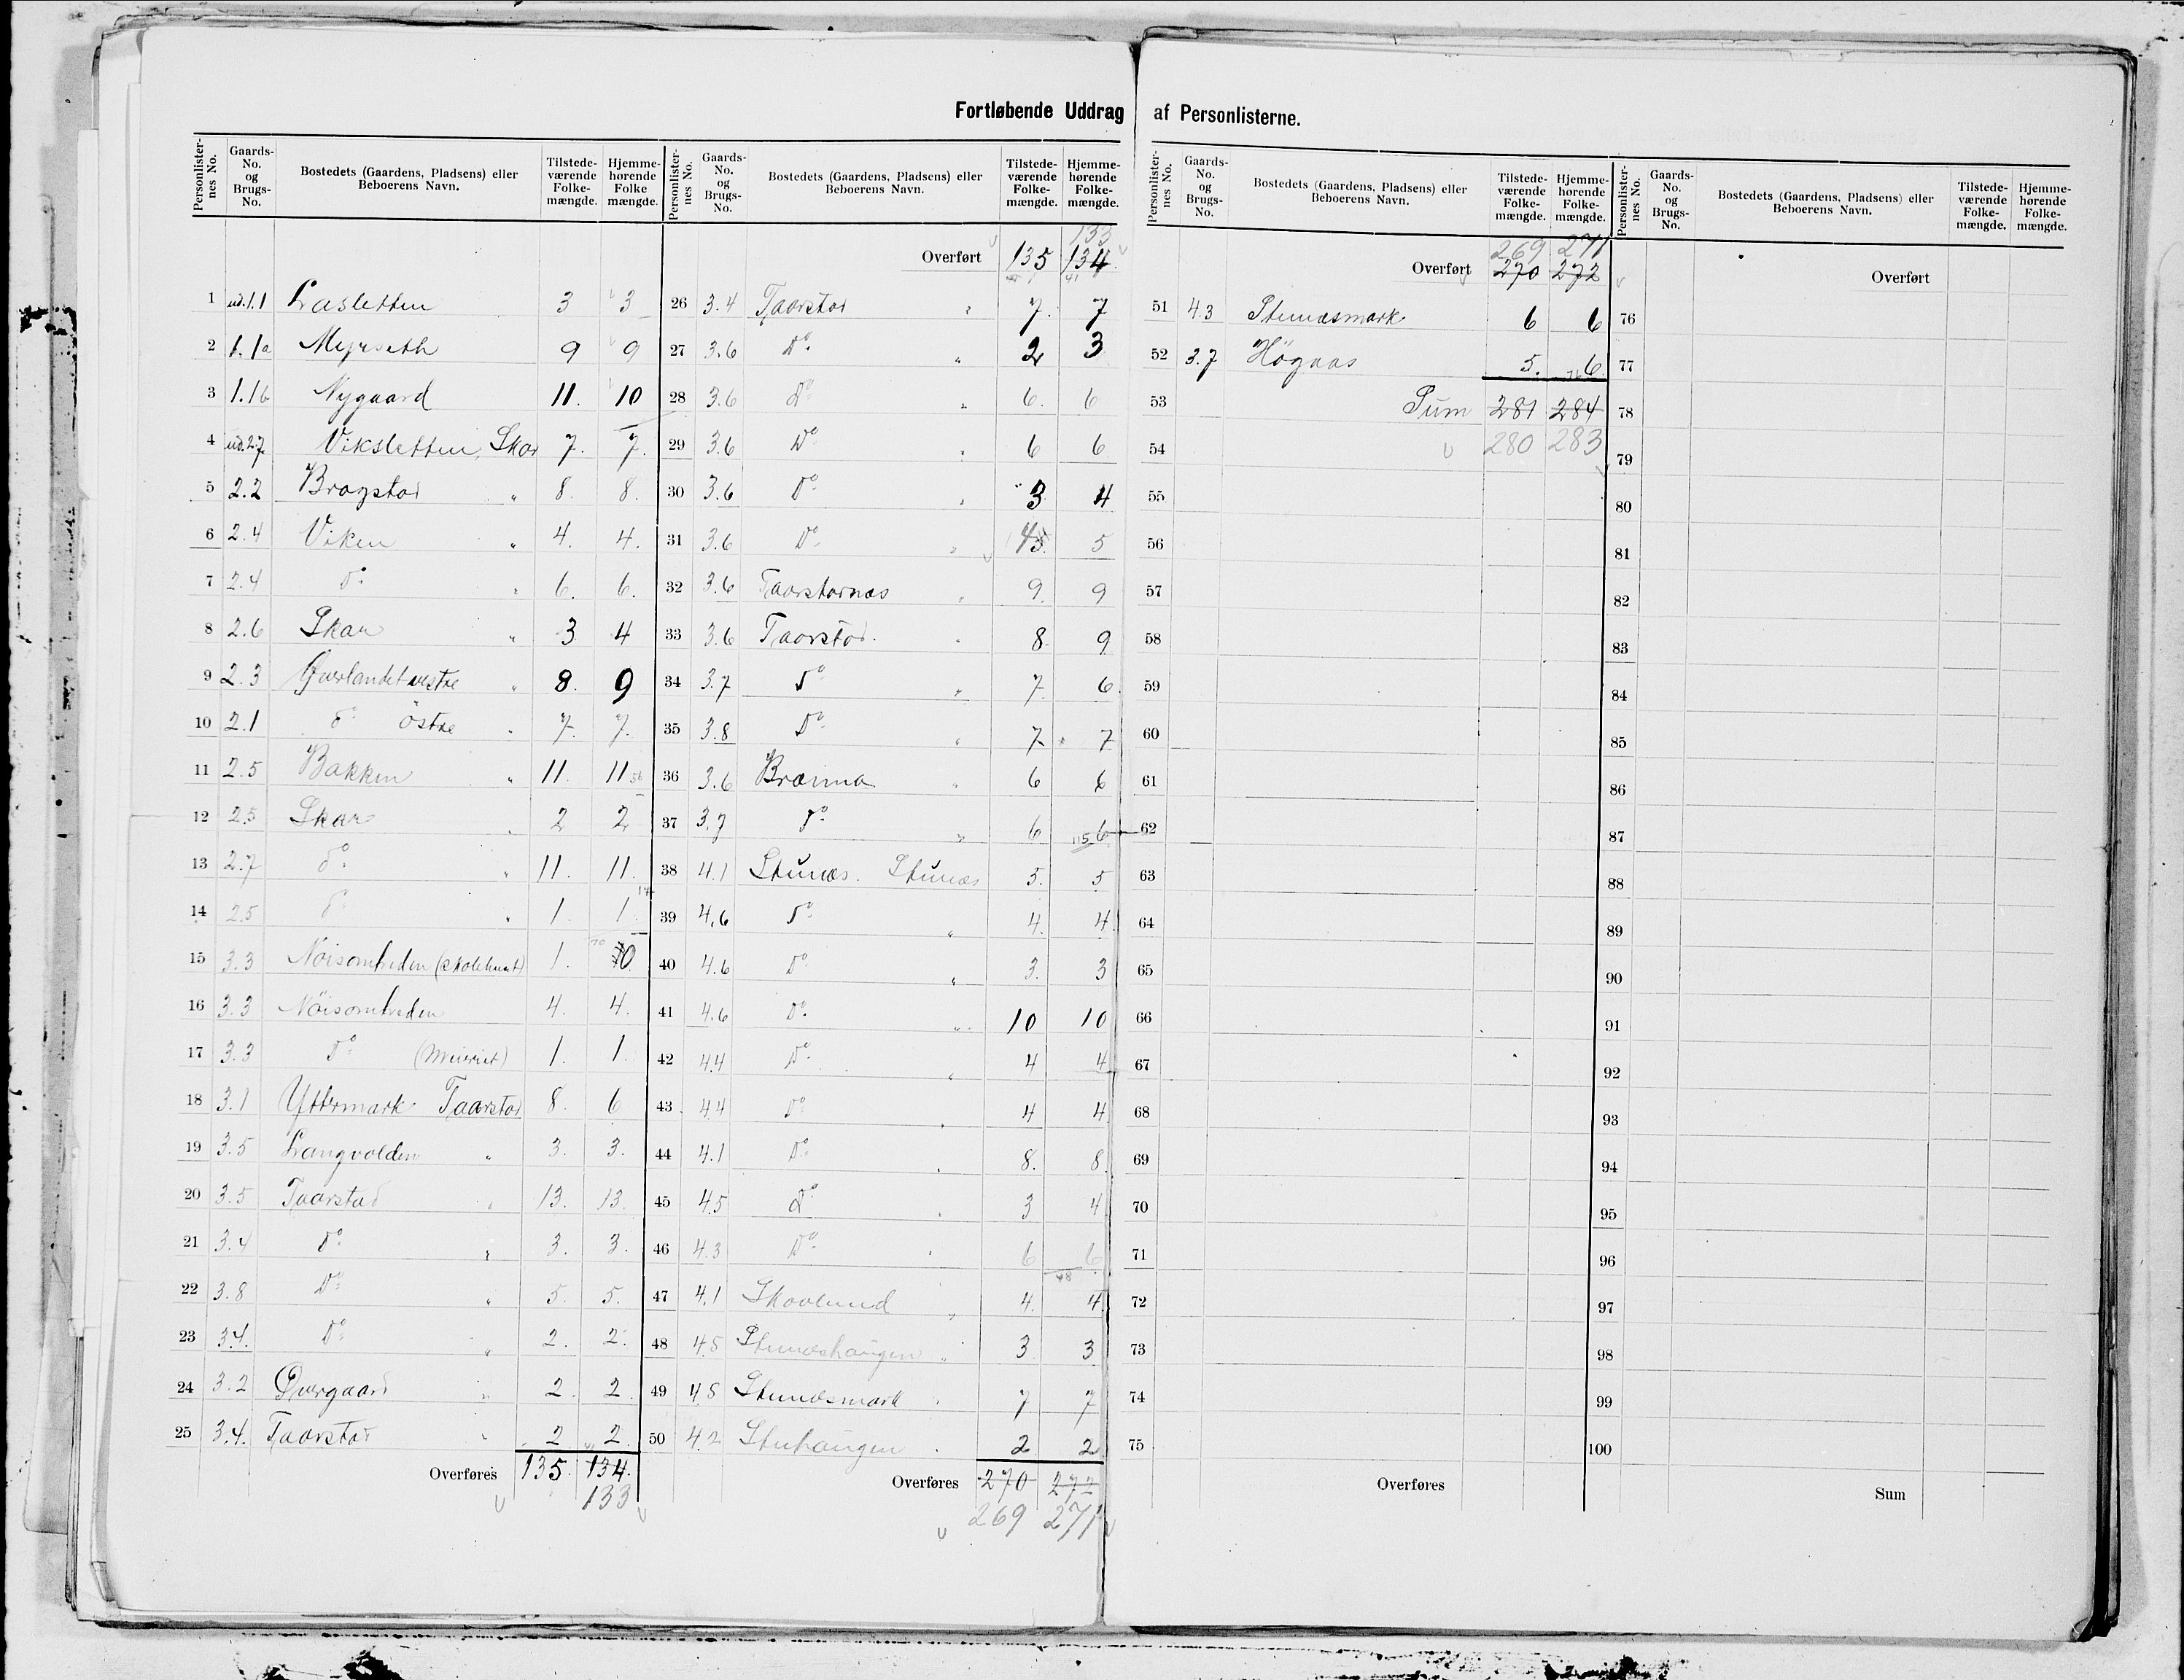 Fortløbende Uddrag af Personlisterne.
Personlister-nes No. Gaards-No. og Brugs-No. Bostedets (Gaardens, Pladsens) eller Beboerens Navn. Tilstede-værende Folke-mængde. Hjemme-hørende Folke mængde.
1 ud.1.1 Lasletten 3 3
2 1.1a Myrseth 9 9
3 1.1b Nygaard 11. 10
4 ud.2.7 Viksletten, Skar 7. 7.
5 2.2 Brogstad " 8. 8.
6 2.4 Viken " 4. 4.
7 2.4 do " 6. 6.
8 2.6 Skar " 3 4
9 2.3 Overlandet vestre " 8. 9
10 2.1 do östre " 7. 7.
11 2.5 Bakken " 11. 11 56
12 2.5 Skar " 2 2
13 2.7 do " 11. 11.
14 2.5 do " 1. 1. 14
15 3.3 Nöisomheden 1. 0
16 3.3 Nöisomheden 4. 4.
17 3.3 do (Meieriet) 1. 1.
18 3.1 Yttermark Taarstad 8. 6
19 3.5 Langvolden " 3. 3.
20 3.5 Taarstad " 13. 13.
21 3.4 do " 3. 3.
22 3.8 Do " 5. 5.
23 3.4. Do " 2. 2.
24 3.2 Övergaard " 2. 2.
25 3.4. Taarstad " 2 2
Overføres 135. 134.
133
Personlister-nes No. Gaards-No. og Brugs-No. Bostedets (Gaardens, Pladsens) eller Beboerens Navn. Tilstede-værende Folke-mængde. Hjemme-hørende Folke-mængde.
133
Overført 135 134.
41
26 3.4 Taarstad " 7. 7
27 3.6 Do " 2 3
28 3.6 Do " 6. 6
29 3.6 Do " 6 6
30 3.6 Do " 3 4
31 3.6 Do " 4 5. 5
32 3.6 Taarstadnes " 9. 9
33 3.6 Taarstad. " 8. 9
34 3.7 Do " 7. 6.
35 3.8 Do " 7. 7
36 3.6 Brenna " 6 6
37 3.7 Do " 6 115 6
38 4.1 Stunes. Stunes 5. 5
39 4.6 Do " 4. 4
40 4.6 Do " 3. 3
41 4.6 Do " 10 10
42 4.4 Do " 4 4
43 4.4 Do " 4 4
44 4.1 Do " 8. 8.
45 4.5 Do " 3 4
46 4.3 Do " 6 6
48
47 4.1 Skovlund " 4. 4.
48 4.5 Stuneshaugen " 3 3
49 4.5 Stunesmark " 7 7
50 4.2 Stuhaugen " 2 2
Overføres 270 272
269 271
Personlister-nes No. Gaards-No. og Brugs-No. Bostedets (Gaardens, Pladsens) eller Beboerens Navn. Tilstede-værende Folke-mængde. Hjemme-hørende Folke-mængde.
269 271
Overført 270 272
51 4.3 Stunesmark 6 6
52 3.7 Högaas 5. 6.
53 Sum 281 284
54 280 283
55
56
57
58
59
60
61
62
63
64
65
66
67
68
69
70
71
72
73
74
75
Overføres
Personlister-nes No. Gaards-No. og Brugs-No. Bostedets (Gaardens, Pladsens) eller Beboerens Navn. Tilstede-værende Folke-mængde. Hjemme-hørende Folke-mængde.
Overført
76
77
78
79
80
81
82
83
84
85
86
87
88
89
90
91
92
93
94
95
96
97
98
99
100
Sum